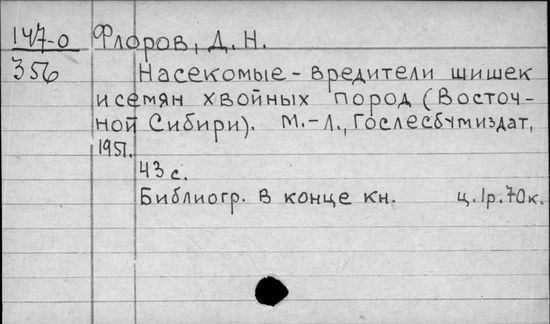 147-0 Флоров, Д. Н.
356 Насекомые - вредители шишек
и семян хвойных пород (Восточ-
ной Сибири). М.-Л., Гослесбумиздат,
1951.
43 с.
Библиогр. в конце кн. ц. 1р. 70к.